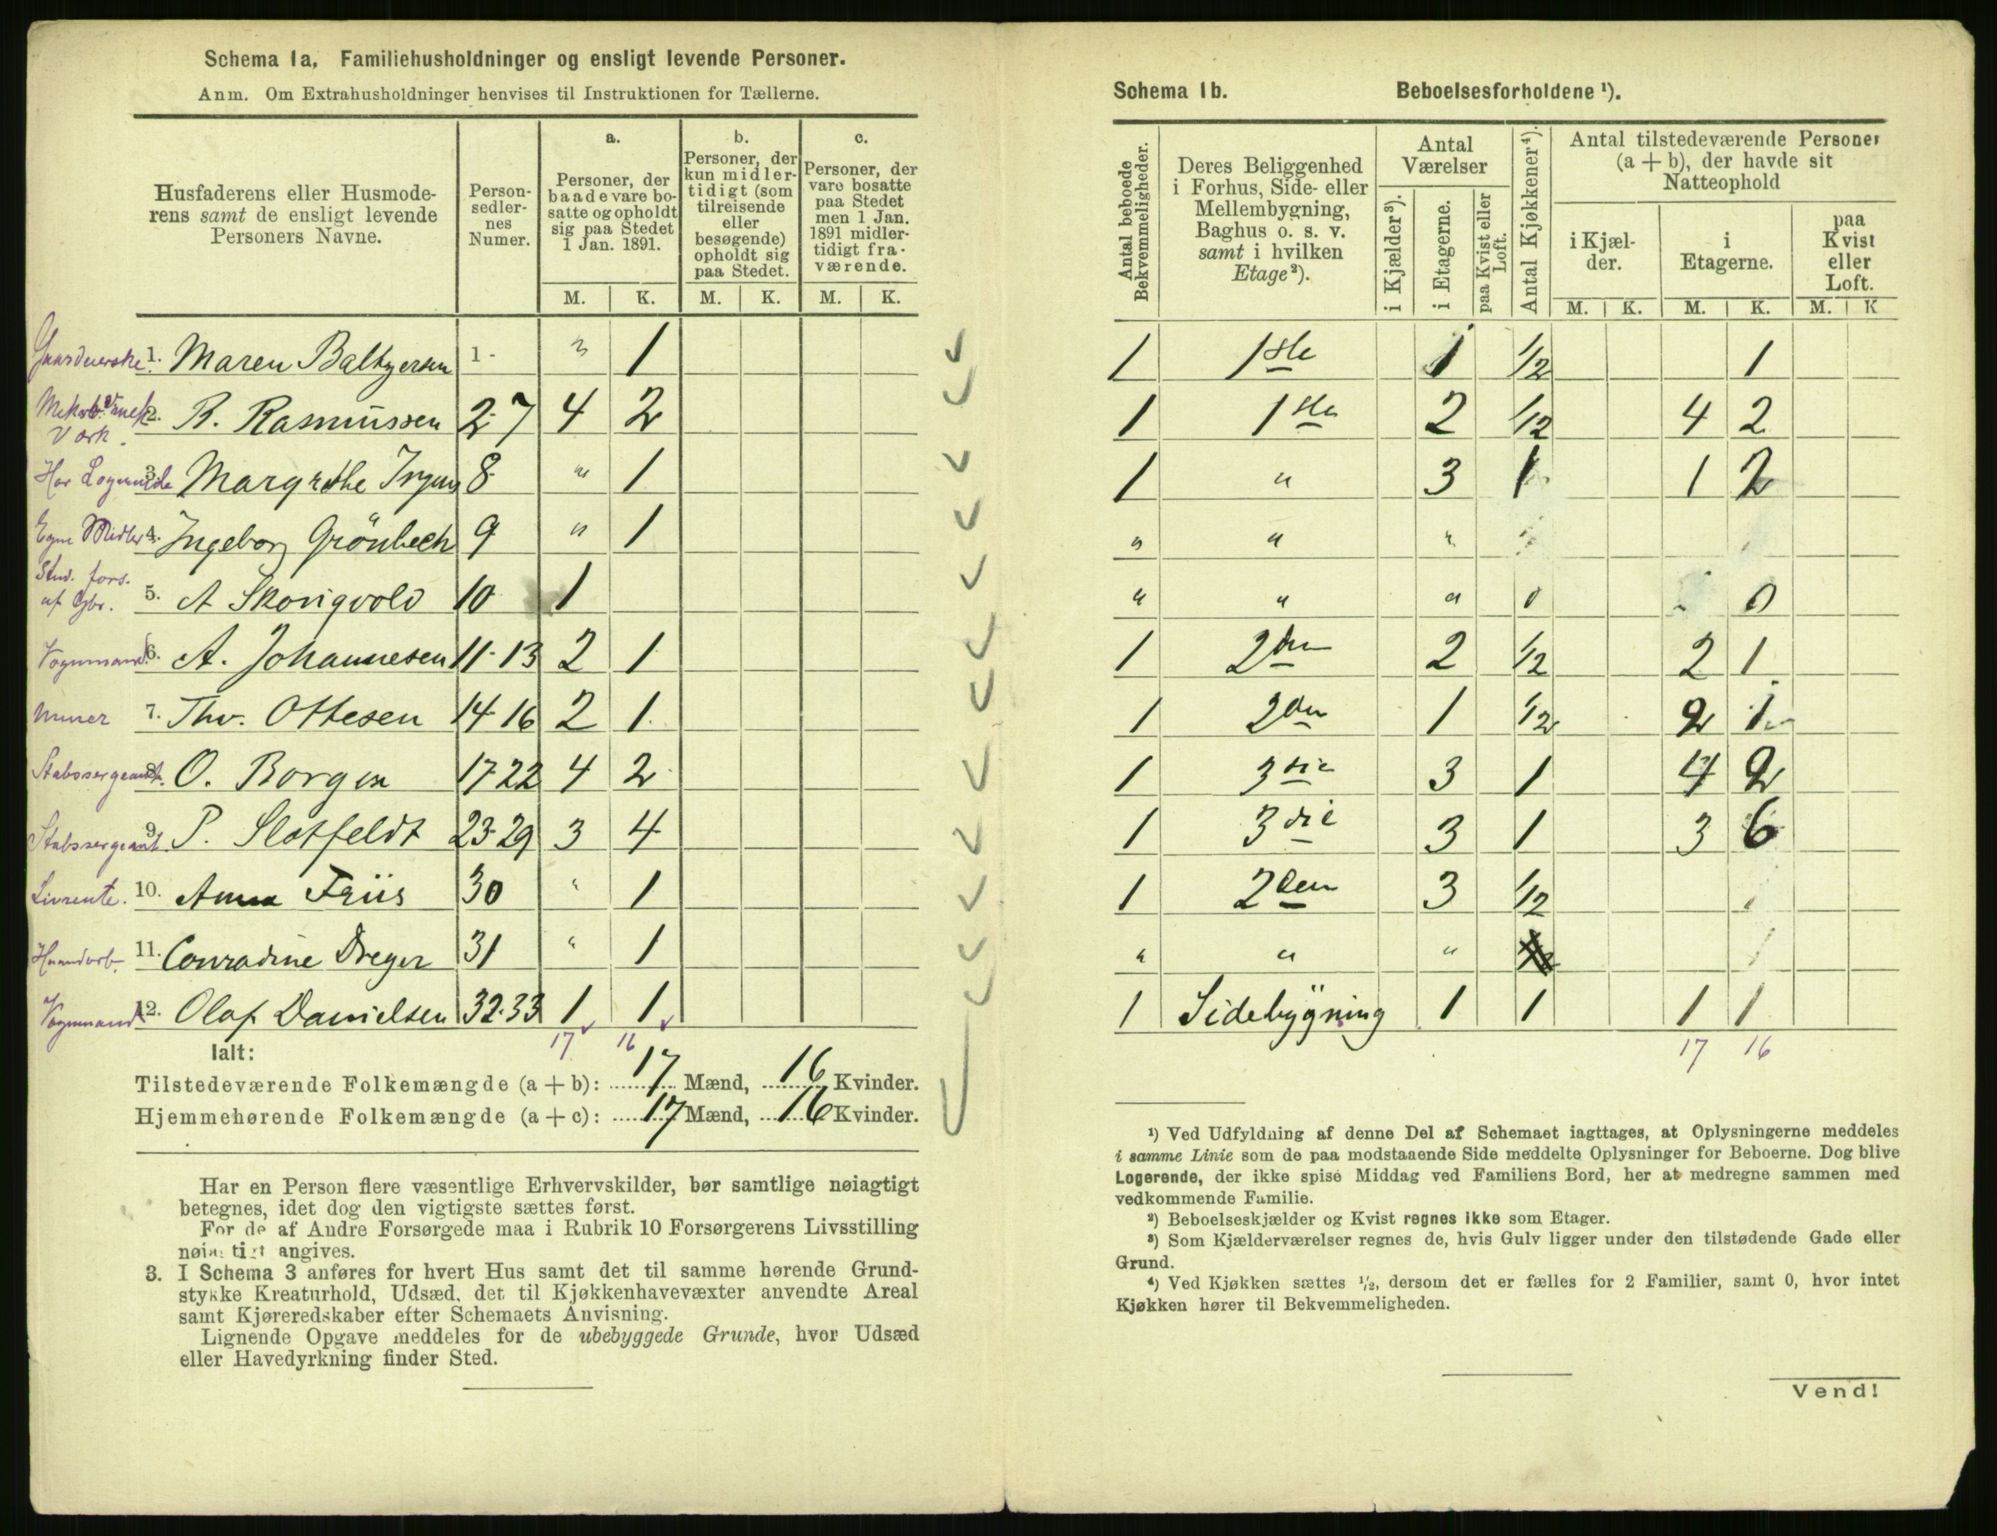 Schema 1a. Familiehusholdninger og ensligt levende Personer.
Anm. Om Extrahusholdninger henvises til Instruktionen for Tællerne.
Husfaderens eller Husmoderens samt de ensligt levende Personers Navne.
Personsedlernes Numer.
a.
Personer, der baade vare bosatte og opholdt sig paa Stedet 1 Jan. 1891.
b.
Personer, der kun midlertidigt (som tilreisende eller besøgende) opholdt sig paa Stedet.
c.
Personer, der vare bosatte paa Stedet men 1 Jan. 1891 midlertidigt fraværende.
M. K. M. K. M. K.
Gaardeierske 1. Maren 1 - " 1
2. R. Rasmussen 2-7 4 2
3. Margrethe 8 " 1
Egne Midler 4. Ingeborg Grönbech 9 " 1
Stud. fors. af
5. A Skorigvold 10 1
Vognmand 6. A. Johannesen 11-13 2 1
Murer 7. Thv. Ottesen 14-16 2 1
Stabssergeant 8. O. Borgen 17-22 4 2
Stabssergeant. 9. P. Slotfeldt 23-29 3 4
Livrente. 10. Anna Friis 30 " 1
Haandarb. 11. Conradine Dreyer 31 " 1
Vognmand 12. Olaf Danielsen 32-33 1 1
17 16
Ialt:
Tilstedeværende Folkemængde (a + b): 17 Mænd, 16 Kvinder.
Hjemmehørende Folkemængde (a + c): 17 Mænd, 16 Kvinder.
Har en Person flere væsentlige Erhvervskilder, bør samtlige nøiagtigt
betegnes, idet dog den vigtigste sættes først.
For de af Andre Forsørgede maa i Rubrik 10 Forsørgerens Livsstilling
nøiagtigt angives.
3. I Schema 3 anføres for hvert Hus samt det til samme hørende Grund-
stykke Kreaturhold, Udsæd, det til Kjøkkenhavevæxter anvendte Areal
samt Kjøreredskaber efter Schemaets Anvisning.
Lignende Opgave meddeles for de ubebyggede Grunde, hvor Udsæd
eller Havedyrkning finder Sted.
Schema 1b. Beboelsesforholdene ¹).
Antal beboede Bekvemmeligheder.
Deres Beliggenhed i Forhus, Side- eller Mellembygning, Baghus o. s. v. samt i hvilken Etage ²).
Antal Værelser
i Kjælder ³).
i Etagerne.
paa Kvist eller Loft.
Antal Kjøkkener ⁴).
Antal tilstedeværende Personer (a + b), der havde sit Natteophold
i Kjælder.
i Etagerne.
paa Kvist eller Loft.
M. K. M. K. M. K
1 1ste 1 1/2 1
1 1ste 2 1/2 4 2
1 " 3 1 1 2
" " "
" " " 0 0
1 2den 2 1/2 2 1
1 2den 1 1/2 2 1
1 3die 3 1 4 2
1 3die 3 1 3 6
1 2den 3 1/2
" " "
1 Sidebygning 1 1 1 1
17 16
¹) Ved Udfyldning af denne Del af Schemaet iagttages, at Oplysningerne meddeles
i samme Linie som de paa modstaaende Side meddelte Oplysninger for Beboerne. Dog blive
Logerende, der ikke spise Middag ved Familiens Bord, her at medregne sammen med
vedkommende Familie.
²) Beboelseskjælder og Kvist regnes ikke som Etager.
³) Som Kjælderværelser regnes de, hvis Gulv ligger under den tilstødende Gade eller
Grund.
⁴) Ved Kjøkken sættes ½, dersom det er fælles for 2 Familier, samt 0, hvor intet
Kjøkken hører til Bekvemmeligheden.
Vend!